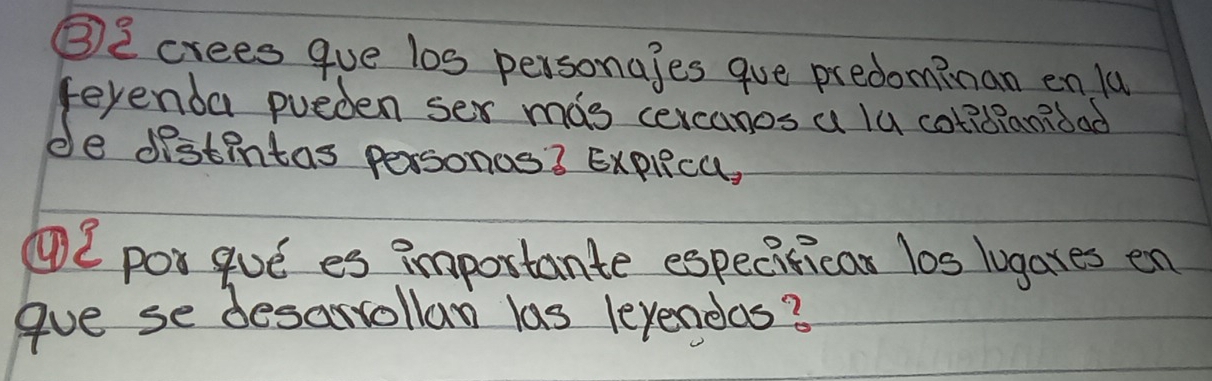 ③¿ crees que los personajes que predominan en la
leyenda pueden ser más cercanos a la cotidianidad
de distintas personas? Explica,
④¿ por qué es importante especificar los lugares en
que se desarrollan las leyendas?